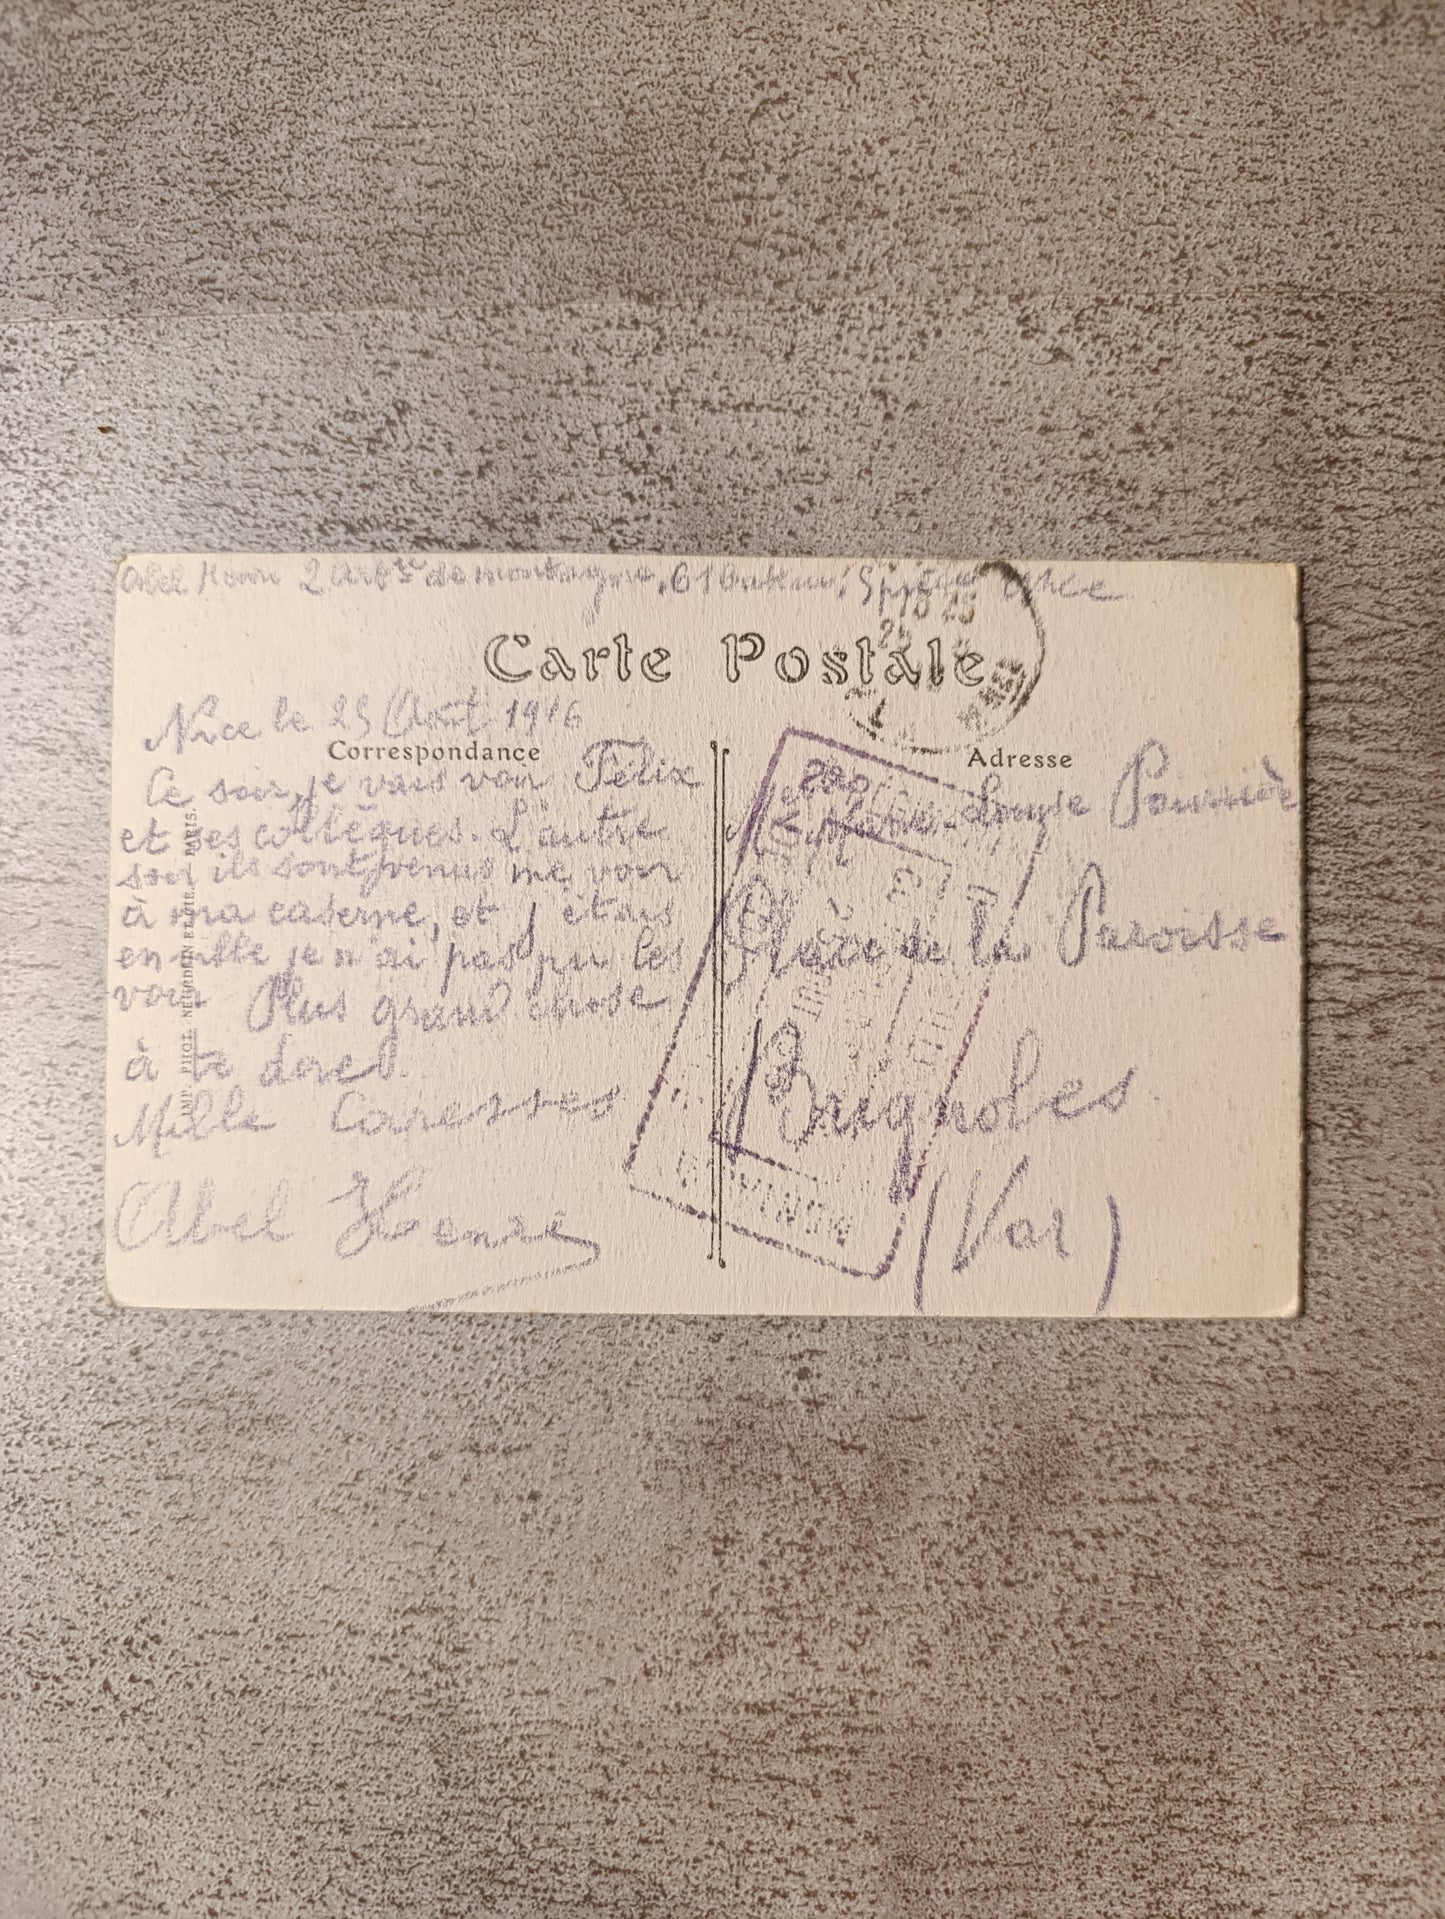 Abel Henri 2 artie de montagne, 61 Batterie, 9 pièce Nice
Carte Postale
Nice le 25 Août 1916
Correspondance
Ce soir, je vais voir Félix
et ses collègues. L'autre
soir ils sont venus me voir
à ma caserne, et j'étais
en ville je n'ai pas pu les
voir Plus grand chose
à te dire.
Mille Caresses
Abel Henri
IMP. PHOT. NEURDEIN ET CIE PARIS
Adresse
Louise Pourrière
Place de la Paroisse
Brignoles
(Var)